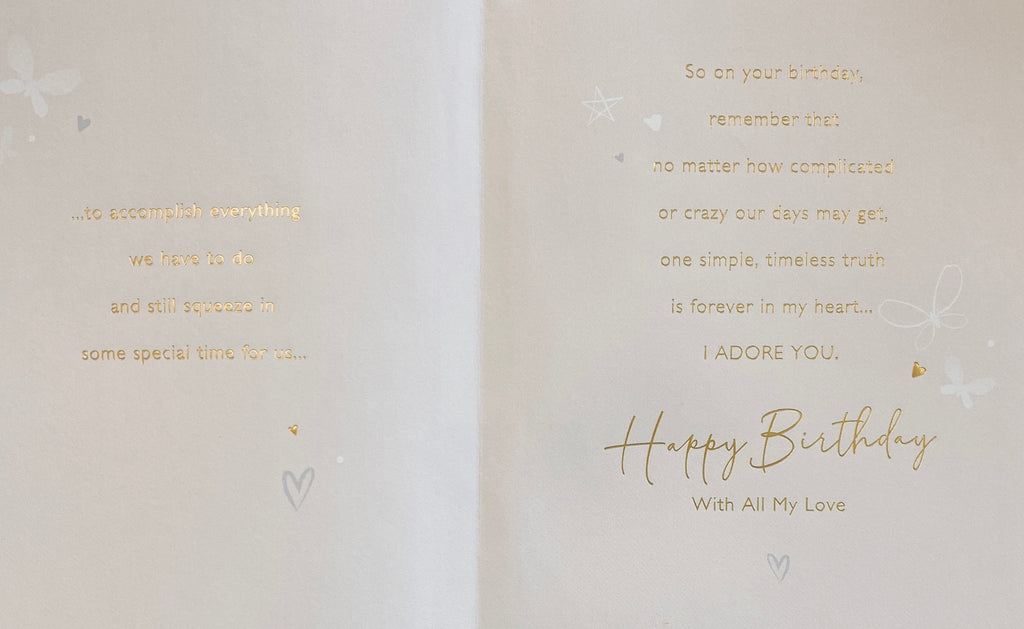 ...to accomplish everything
we have to do
and still squeeze in
some special time for us...
So on your birthday,
remember that
no matter how complicated
or crazy our days may get,
one simple, timeless truth
is forever in my heart...
I ADORE YOU.
Happy Birthday
With All My Love